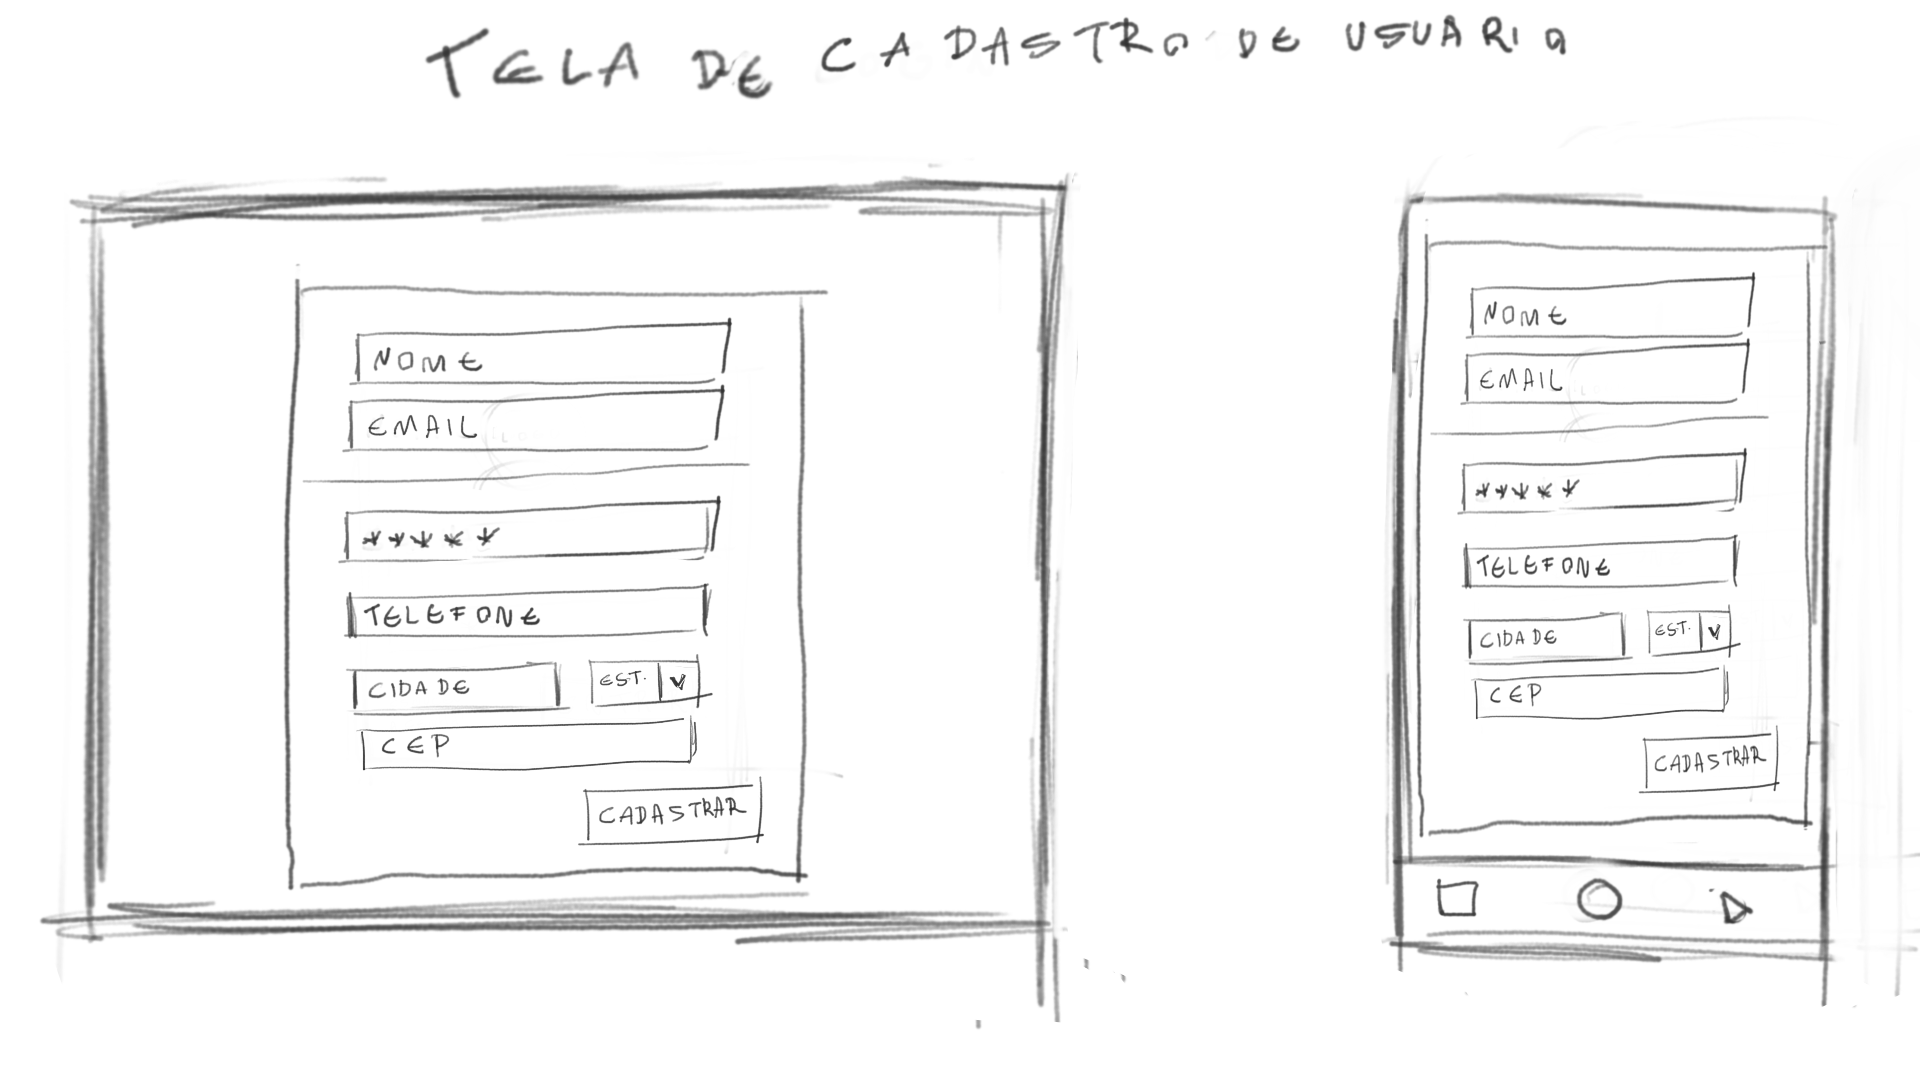 TELA DE CADASTRO DE USUARIO
NOME
EMAIL
*****
TELEFONE
CIDADE EST. V
CEP
CADASTRAR
NOME
EMAIL
*****
TELEFONE
CIDADE EST. V
CEP
CADASTRAR